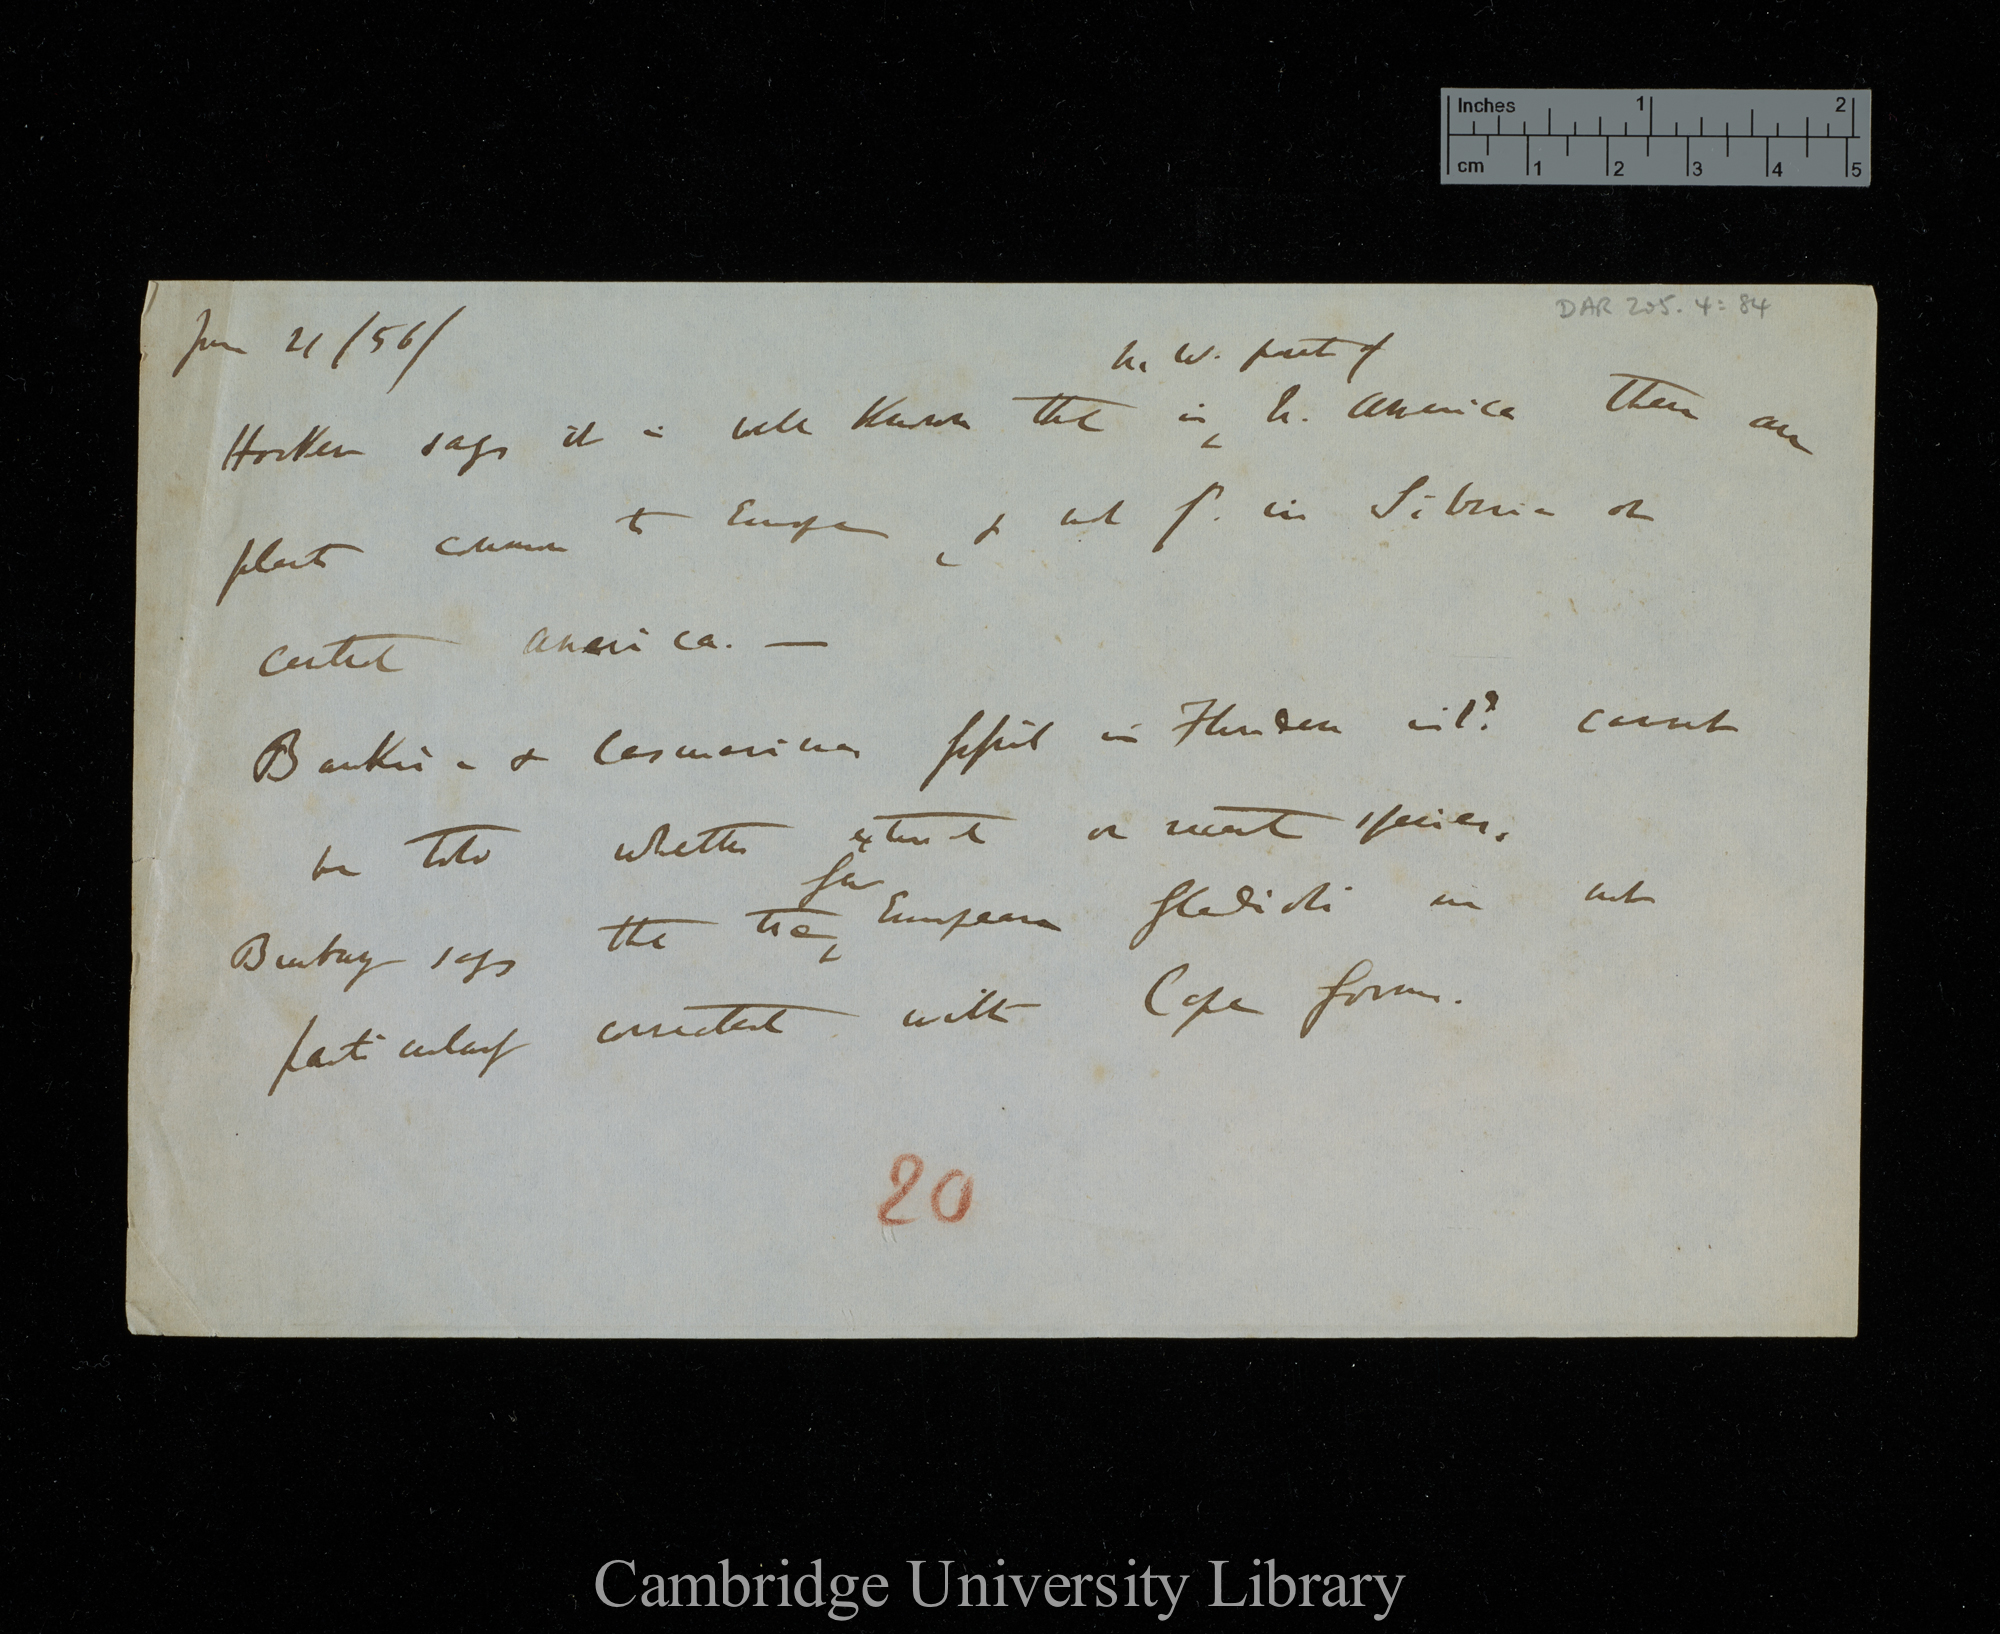 Inches 1 2
cm 1 2 3 4 5
DAR 205.4:84
June 21/56/
N. W. part of
Hooker says it is well known that in N. America there are
plants common to Europe & not f. in Siberia or
central America. —
Banksia & Casuarinas fossil in cannot
be told whether extinct or recent species.
few
Bunbury says the true European Gladioli are not
particularly connected with Cape forms.
20
Cambridge University Library